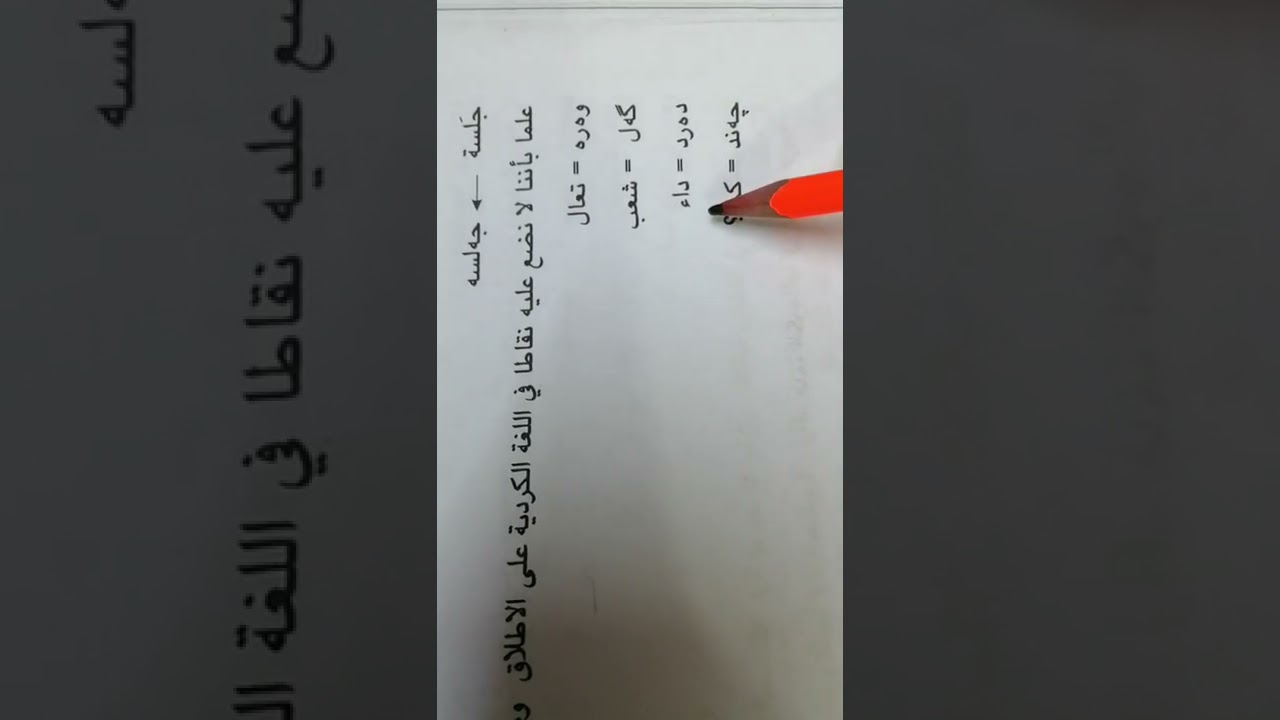 جَلسة ← جەلسە
علما بأننا لا نضع عليه نقاطا في اللغة الكردية على الاطلاق
وەرە = تعال
گەل = شعب
دەرد = داء
چەند =